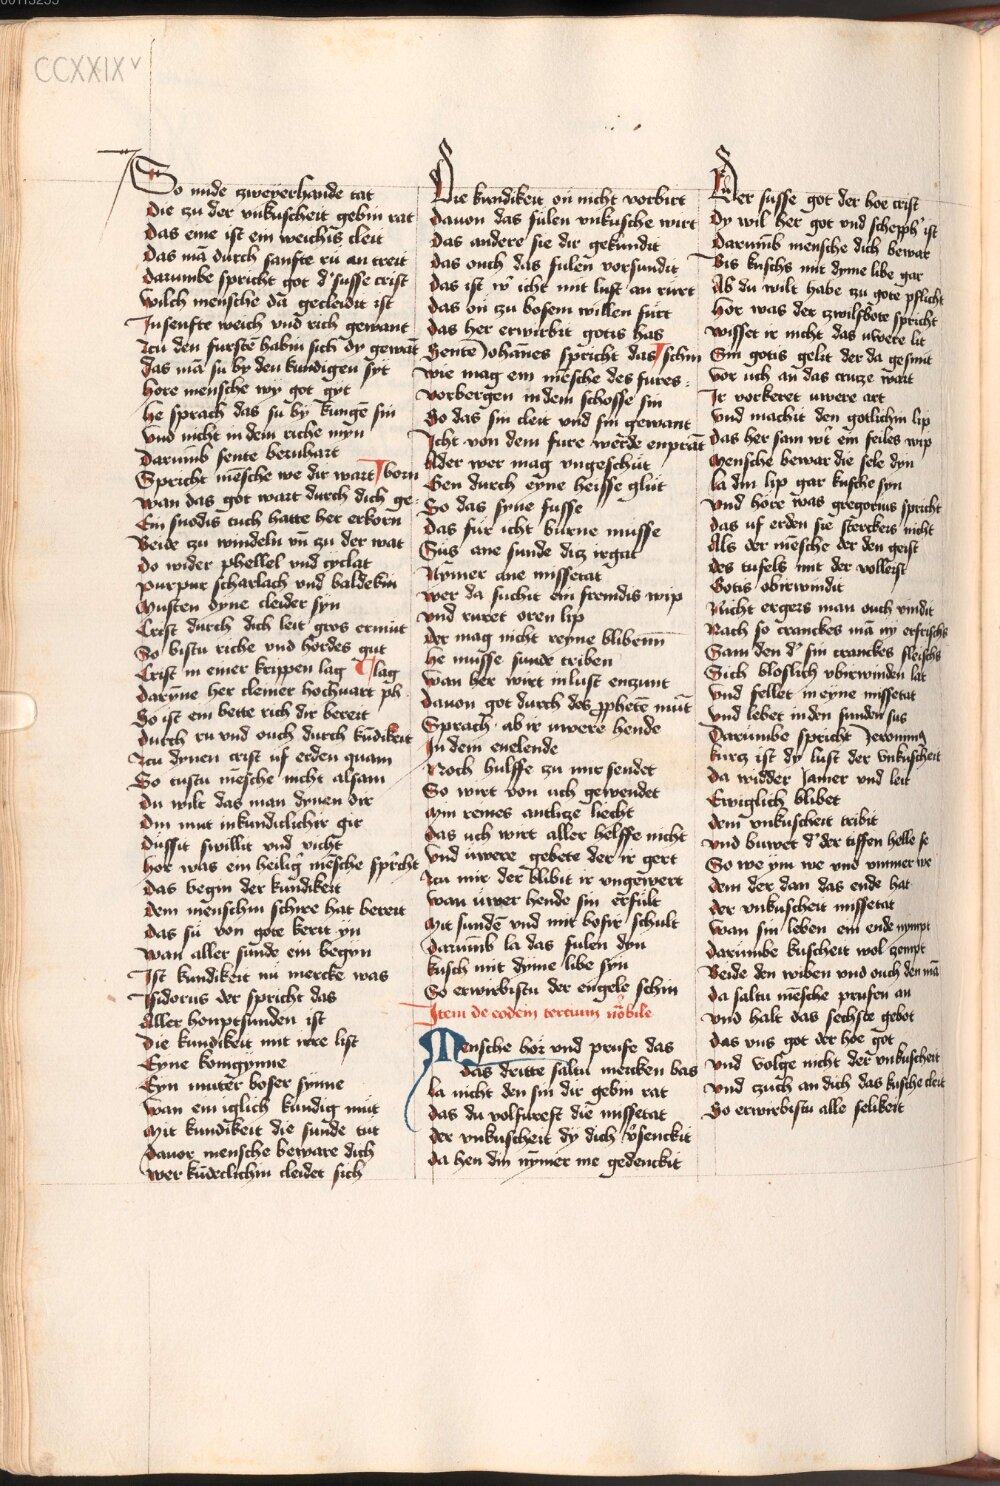 CCXXIX v
So mide zweyerhande tat
Die zu der vnkuscheit gebin rat
Das eine ist ein weichis cleit
Das mā durch sanfte ru an treit
Darumbe spricht got d' susse crist
Wilch mensche da gecleidit ist
In senfte weich vnd rich gewant
Zcu den furstē habin sich dy gewāt
Das mā su by den kundigen syt
Hore mensche wy got gyt
He sprach das su by kungē sin
Vnd nicht in dem riche myn
Darumb sente bernhart
Spricht mēsche we dir wart born
Wan das got wart durch dich ge-
Ein snodis tuch hatte her erkorn
Beide zu windeln vn̄ zu der wat
Do wider phellel vnd cyclat
Purpur scharlach vnd baldekin
Musten dyne cleider syn
Crist durch dich leit gros ermut
So bistu riche vnd hordes gut
Crist in einer krippen lag lag
Darynne her cleiner hochuart ph
So ist ein bette rich dir bereit
Durch ru vnd ouch durch kūdikeit
Zcu dynen crist uf erden quam
So tustu mēsche nicht alsam
Du wilt das man dynen dir
Din mut in kundiclichir gir
Dussit swillit vnd vicht
Hor was ein heilig' mēsche spricht
Das begin der kundikeit
Dem menschin schire hat bereit
Das su von gote kerit yn
Wan aller sunde ein begyn
Ist kundikeit nu mercke was
Isidorus der spricht das
Aller houptsunden ist
Die kundikeit mit irre list
Eyne konigynne
Eyn muter boser synne
Wan ein iglich kundig mut
Mit kundikeit die sunde tut
Dauor mensche beware dich
Wer kūdeclichin cleidet sich
Die kundikeit on nicht vorbirt
Dauon das fulen vnkusche wirt
Das andere sie dir gekundit
Das ouch das fulen vorsundit
Das ist w icht mit lust an rurt
Das on zu bosem willen furt
Das her erwirbit gotis has
Sente Johānes spricht das schin
Wie mag ein mēsche des fures
Vorbergen in dem schosse sin
So das sin cleit vnd sin gewant
Icht von dem fure werde enprāt
Ader wer mag vngeschut
Gen durch eyne heisse glut
So das syne fusse
Das fur icht burne musse
Sus ane sunde diz irgat
Nymer ane missetat
Wer da suchit ein fremdis wip
Vnd ruret oren lip
Der mag nicht reyne blibenn
He musse sunde triben
Wan her wirt in lust enzunt
Dauon got durch des p̄phetē mūt
Sprach ab ir uwere hende
In dem enelende
Noch hulffe zu mir sendet
So wirt von uch gewendet
Min reines antlize liecht
Das uch wirt aller helffe nicht
Vnd uwere gebete der ir gert
Zcu mir der blibit ir vngewert
Wan uwer hende sin erfult
Mit sundē vnd mit bosir schult
Darumb la das fulen dyn
Kusch mit dyme libe syn
So erwirbistu der engele schin
Item de eodem tercium nōbile
Mensche hor vnd prufe das
Das dritte saltu mercken bas
La nicht den sin dir gebin rat
Das du volfurest die missetat
Der vnkuscheit dy dich v'senckit
Da hen din nymer me gedenckit
Der susse got der hoe crist
Dy wil her got vnd schepph' ist
Darumb mensche dich bewar
Bis kuschs mit dyme libe gar
Ab du wilt habe zu gote pflicht
Hor was der zwilfbote spricht
Wisset ir nicht das uwere lit
Sin gotis gelit der da gesmit
Vor uch an das cruze wart
Ir vorkeret uwere art
Vnd machit den gotlichin lip
Das her sam wt ein feiles wip
Mensche bewar die sele dyn
La din lip gar kusche syn
Vnd hore was gregorius spricht
Das uf erden sie sterckers nicht
Als der mēsche der den geist
Des tufels mit der volleist
Gotis obirwindit
Nicht ergers man ouch vindit
Nach so cranckes mā ny erfrischs
Sam den d' sin cranckes fleischs
Sich bloslich vbirwinden lat
Vnd fellet in eyne missetat
Vnd lebet in den sunden sus
Darumbe spricht Jeronimus
Kurz ist dy lust der vnkuscheit
Da widder Jamer vnd leit
Ewiglich blibet
Dem vnkuscheit tribit
Vnd buwet d' der tiffen helle se
So we ym we vnd vmmer we
Dem der dan das ende hat
Der vnkuscheit missetat
Wan sin leben ein ende nympt
Darumbe kuscheit wol zempt
Beide den wiben vnd ouch den mā
Da saltu mēsche prufen an
Vnd halt das sechste gebot
Das vns got der hoe got
Vnd volge nicht der vnkuscheit
Vnd zuch an dich das kusche cleit
So erwirbistu alle selikeit